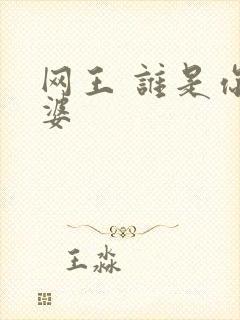 网王 誰是你
婆
王淼